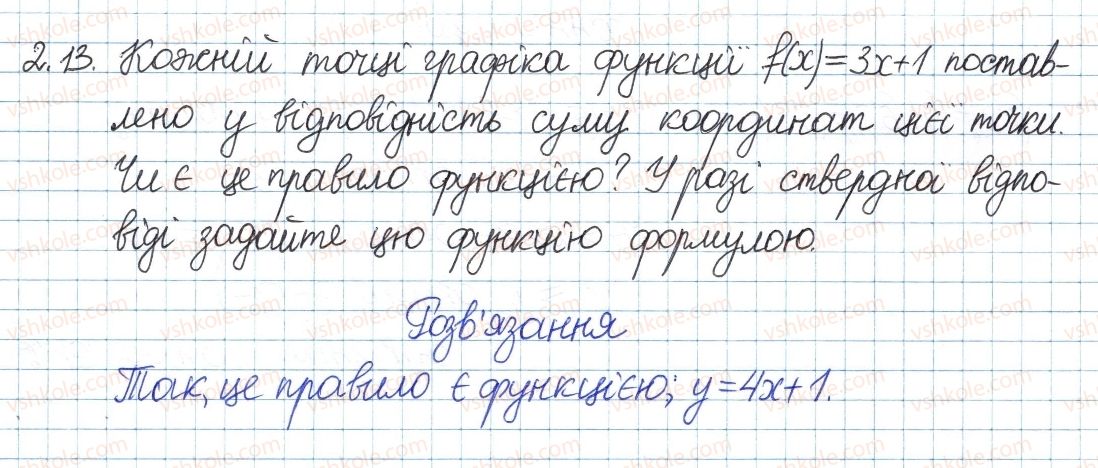 2.13. Кожній точці графіка функції f(x)=3x+1 постав-
лено у відповідність суму координат цієї точки.
Чи є це правило функцією? У разі ствердної відпо-
віді задайте цю функцію формулою.
Розв'язання
Так, це правило є функцією; y=4x+1.